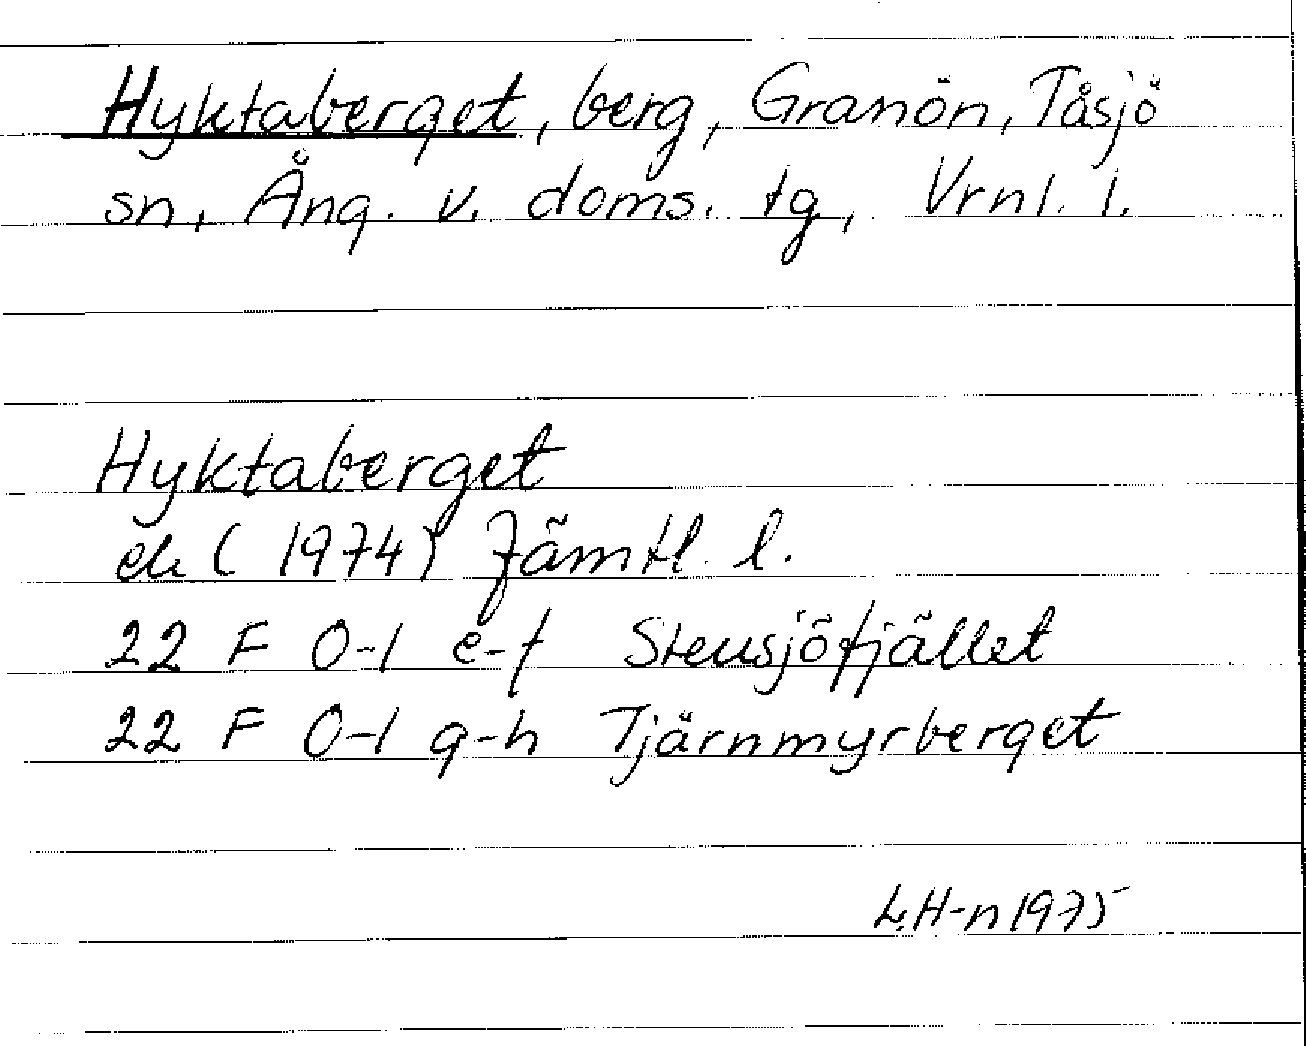 Hyktaberget, berg, Granön, Tåsjö
sn, Ång. v. doms. tg, Vrnl. l.
Hyktaberget
ek (1974) Jämtl. l.
22 F 0-1 e-f Stensjöfjället
22 F 0-1 g-h Tjärnmyrberget
L.H-n 1975